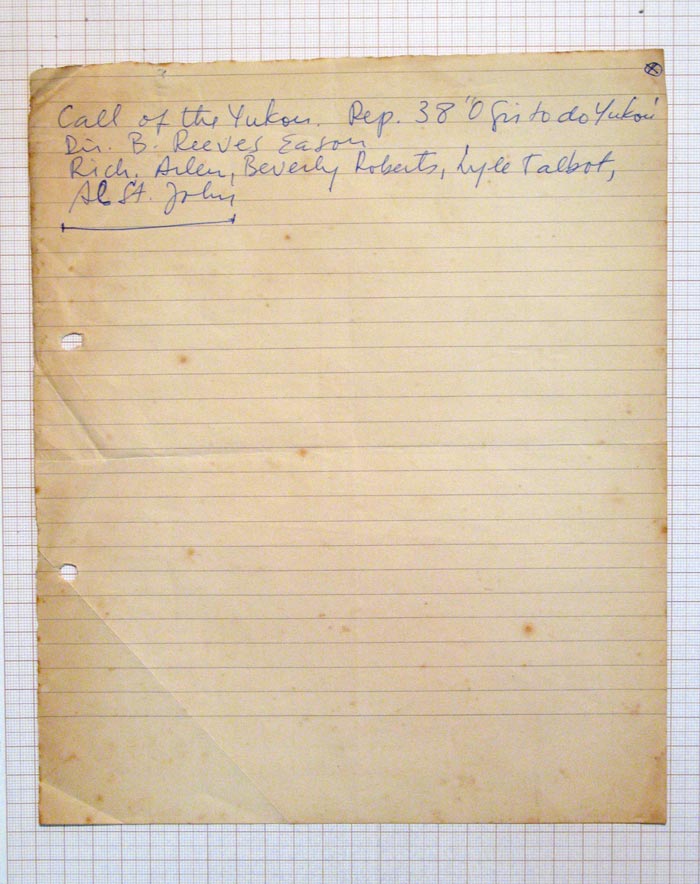 Call of the Yukon. Rep. 38 "O Grito do Yukon"
Dir. B. Reeves Eason
Rich. Arlen, Beverly Roberts, Lyle Talbot,
Al St. John